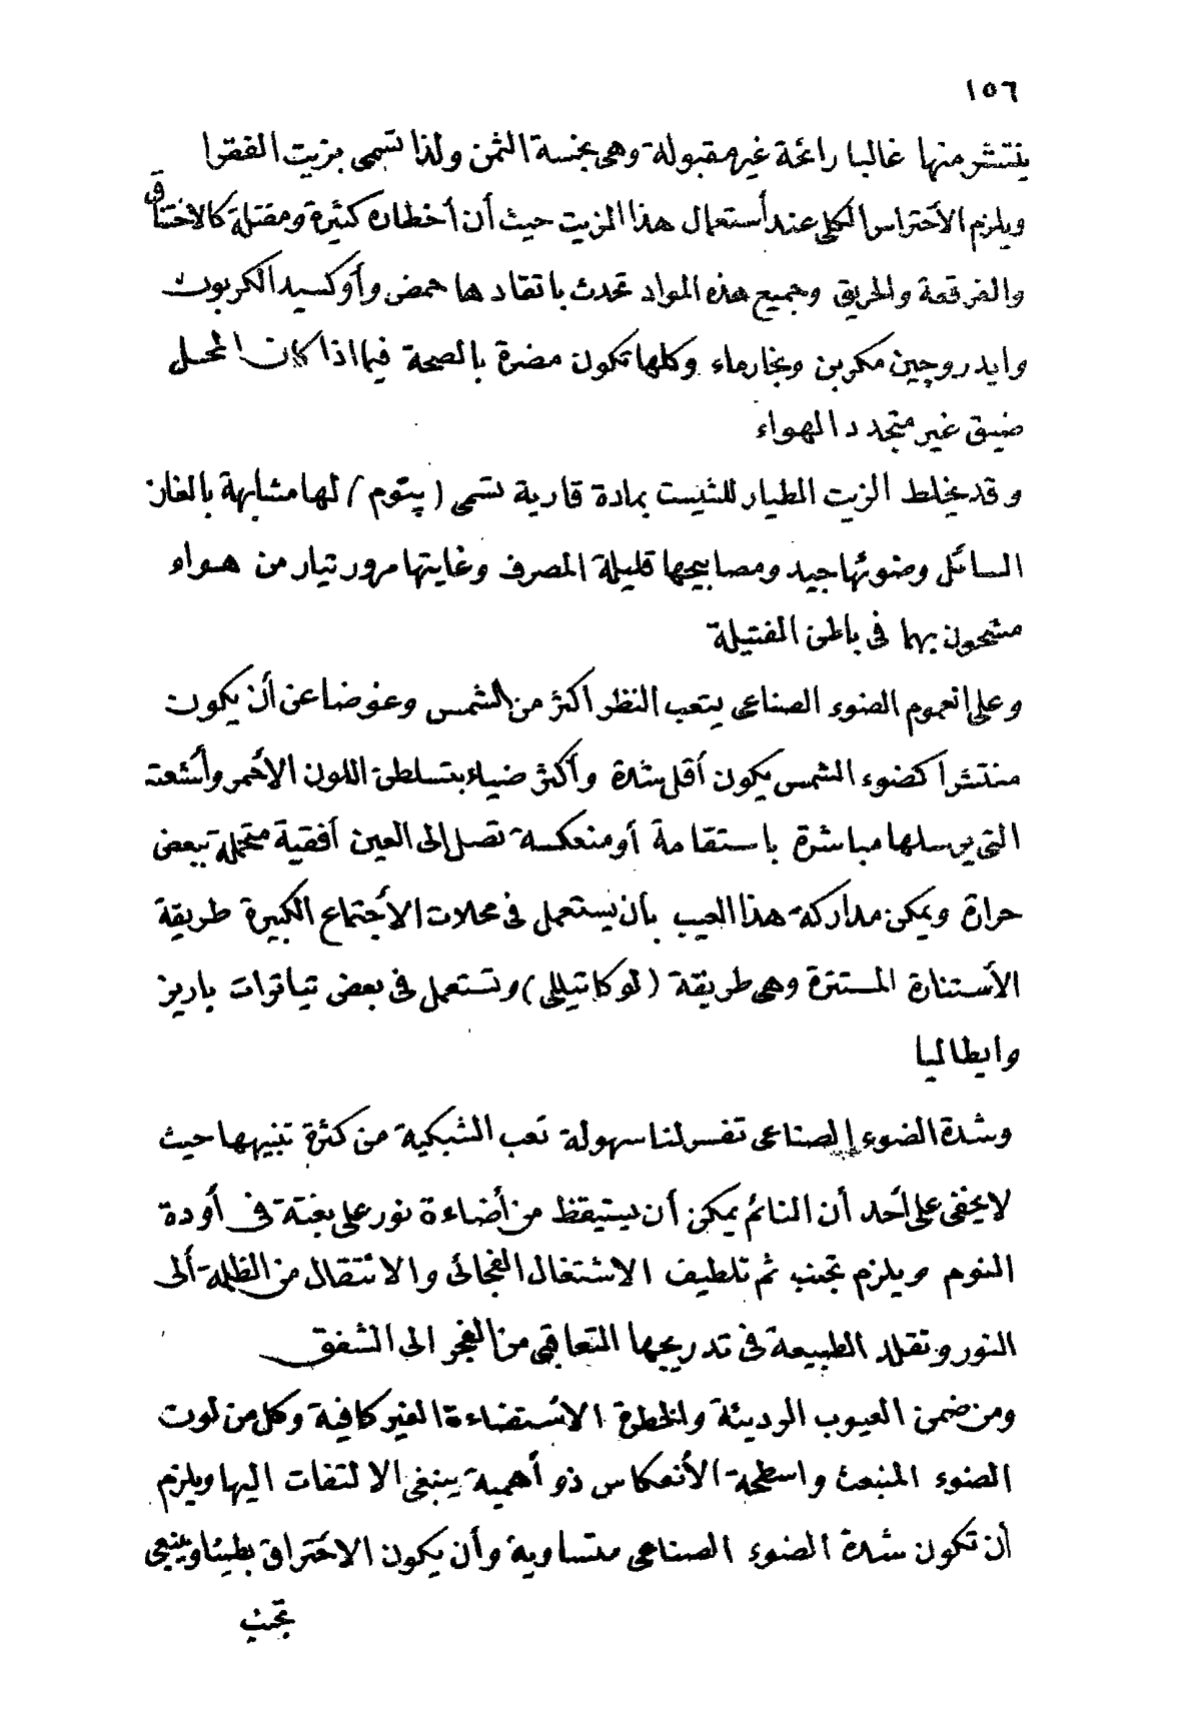 ١٥٦
ينتشر منها غالبا رائحة غير مقبولة وهى بخسة الثمن ولذا تسمى بزيت الفقرا
ويلزم الأحتراس الكلى عند أستعمال هذا الزيت حيث أن أخطاره كثيرة ومقتلة كالاختناق
والفرقعة والحريق وجميع هذه المواد تحدث باتقادها حمض وأوكسيد الكربون
وايدروچين مكربن وبخار ماء وكلها تكون مضرة بالصحة فيما اذا كان المحل
ضيق غير متجدد الهواء
وقد يخلط الزيت الطيار للشيست بمادة قارية تسمى (پيتوم) لها مشابهة بالغاز
السائل وضوئها جيد ومصابيحها قليلة المصرف وغايتها مرور تيار من هواء
مشحون بهما فى باطن الفتيلة
وعلى العموم الضوء الصناعى يتعب النظر اكثر من الشمس وعوضا عن أن يكون
منتشرا كضوء الشمس يكون أقل شدة وأكثر ضياء بتسلطن اللون الأحمر وأشعته
التى يرسلها مباشرة باستقامة أو منعكسة تصل إلى العين أفقية متحملة ببعض
حرارة ويمكن مداركة هذا العيب بأن يستعمل فى محلات الأجتماع الكبيرة طريقة
الأستنارة المستترة وهى طريقة (لوكاتيللى) وتستعمل فى بعض تياترات باريز
وايطاليا
وشدة الضوء الصناعى تفسر لنا سهولة تعب الشبكية من كثرة تنبيهها حيث
لا يخفى على أحد أن النائم يمكن أن يستيقظ من أضاءة نور على بغتة فى أودة
النوم ويلزم تجنب ثم تلطيف الاشتغال الفجائى والانتقال من الظلمة ألى
النور وتقلد الطبيعة فى تدريجها التعاقبى من الفجر الى الشفق
ومن ضمن العيوب الرديئة والخطرة الاستضاءة الغير كافية وكل من لون
الضوء المنبعث واسطحة الأنعكاس ذو أهمية ينبغى الالتفات اليها ويلزم
أن تكون شدة الضوء الصناعى متساوية وأن يكون الاحتراق بطيئا وينبغى
تجنب